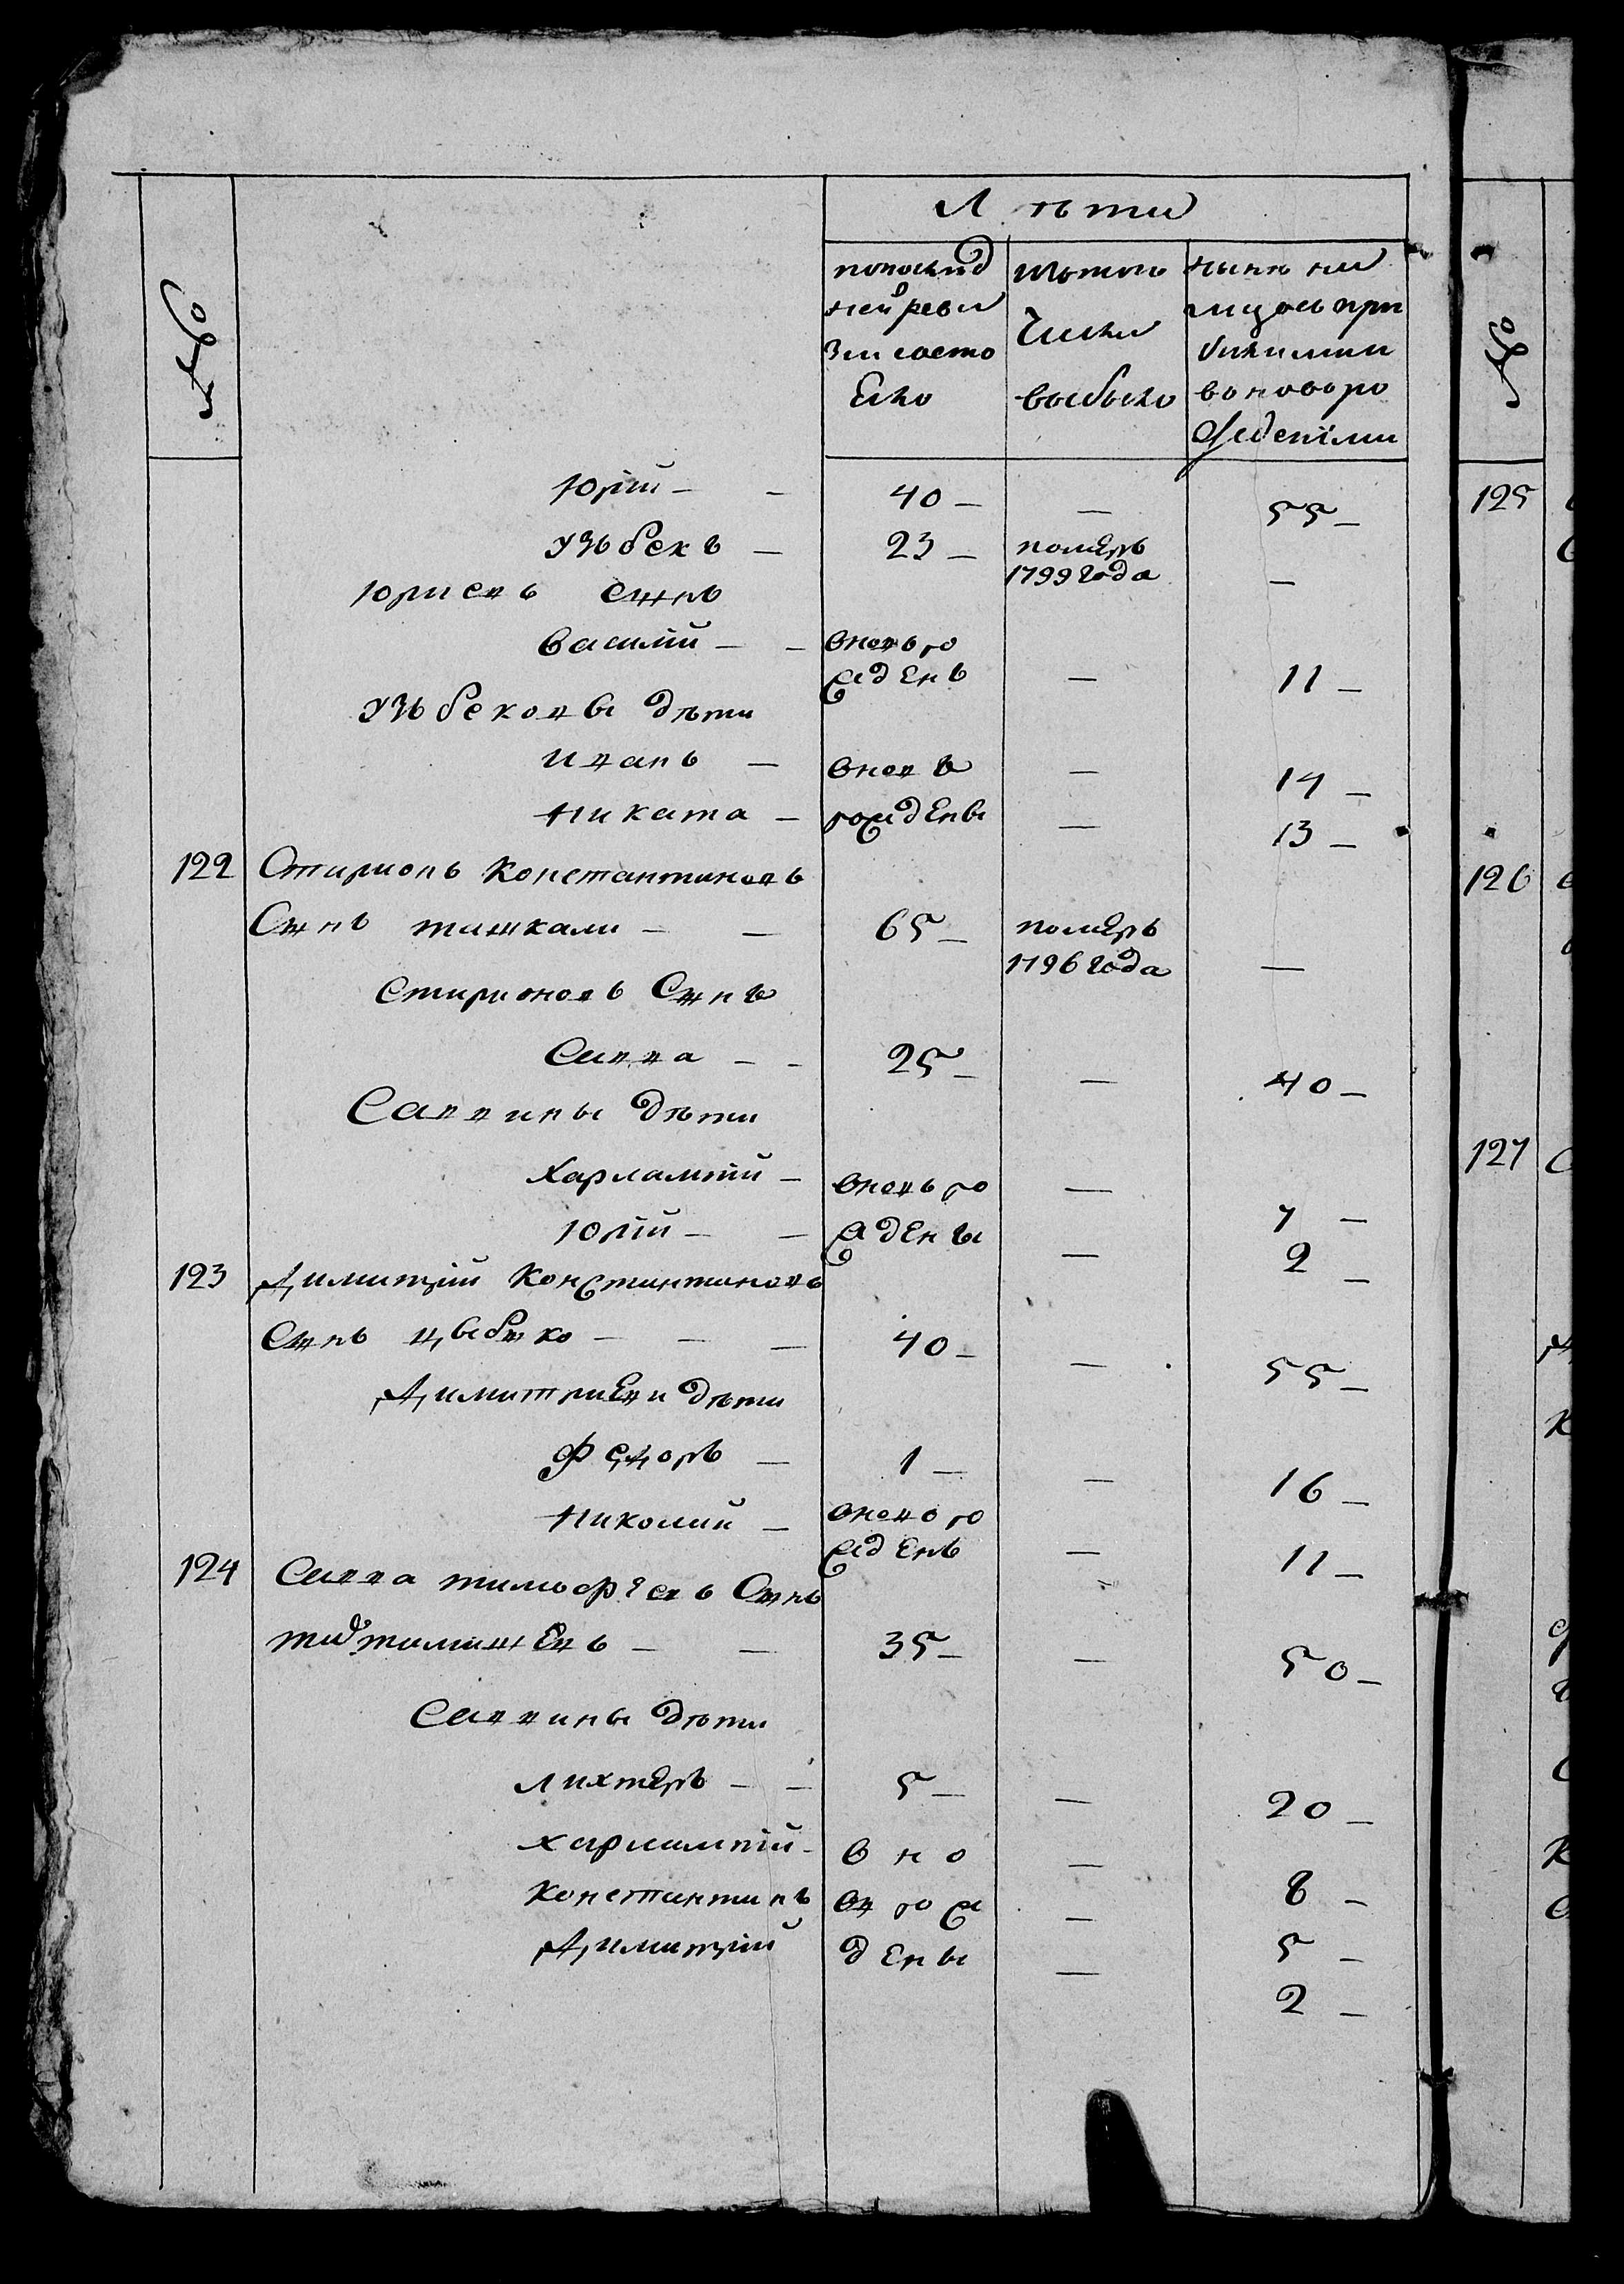 №
Лѣта
попослѣд
ней реви
зіи состо
яло
изтого
Числа
выбыло
нынѣ на
лицо съ при
былыми
вновь ро
жденными
Юрій — 40 — — 55 —
Узбекъ — 23 — померъ
1799 года —
Юриевъ Сынъ
Василій — вновь ро
жденъ — 11 —
Узбековы дѣти
Иванъ — вновъ — 14 —
Никита — рождены — 13 —
122 Стирионъ Константиновъ
Сынъ ташкали — 65 — померъ
1796 года —
Стирионовъ Сынъ
Савва — 25 — — 40 —
Саввины дѣти
Харлампій — вновь ро — 7 —
Юрій — ждены — 2 —
123 Димитрій Константиновъ
Сынъ — 40 — — 55 —
Димитриеви дѣти
Федоръ — 1 — — 16 —
Николай — вновь ро
жденъ — 11 —
124 Савва тимофеевъ Сынъ
— 35 — — 50 —
Саввины дѣти
Лихтеръ — 5 — — 20 —
Харлампій — в н о — 8 —
Константинъ въ ро ж — 5 —
Димитрій дены — 2 —
№
125
126
127